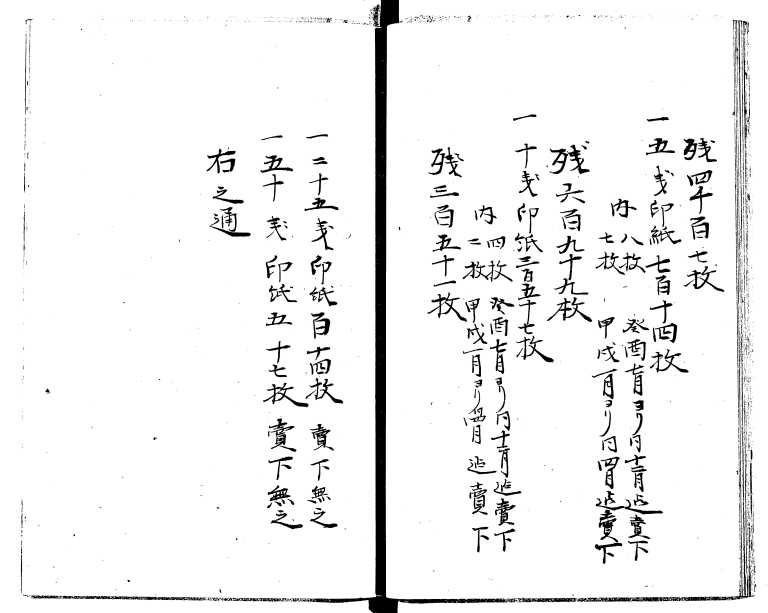 残四千百七枚
一五戔印紙七百十四枚
内 八枚 癸酉七月ヨリ同十二月迠賣下
七枚 甲戌一月ヨリ同四月迠賣下
残六百九十九枚
一十戔印紙三百五十七枚
内 四枚 癸酉七月ヨリ同十二月迠賣下
二枚 甲戌一月ヨリ同四月迠賣下
残三百五十一枚
一二十五戔印紙百十四枚 賣下無之
一五十戔印紙五十七枚 賣下無之
右之通